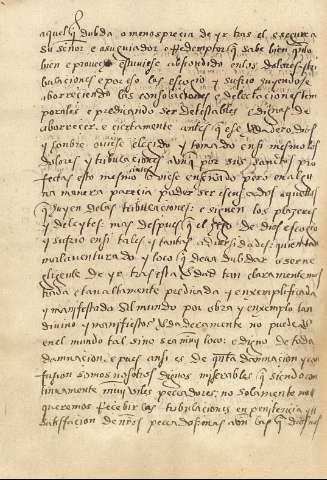 aquel q̃ dubda o menosprecia de yr tras el e segura
su señor e su guiador e Redemptor q̃ sabe bien quãto
bien e provecho estuviese abscondido en los dolores e tri
bulaciones e por eso las escogio y sufrio huyendo e
aborreciendo las consolaciones e delectaciones tem
porales e predicando ser detestables e dignas de
aborrecer. e ciertamente antes q̃ ese verdadero dios
y honbre oviese elegido y tomado en si mesmo los
dolores y tribulaciones aunq̃ por sus sanctos pro
fetas esto mesmo oviese enseñado pero en algu
na manera parecia poder ser escusados aquellos
q̃ huyen de las tribulaciones: e siguen los plazeres
y deleytes: mas despues q̃ el hijo de dios escogio
y sufrio en si tales y tantas adversidades: quien tan
malaventurado y loco q̃ deva dubdar o ser ne
gligente de yr tras esta verdad tan claramente mos
trada e tan altamente predicada y enxemplificada
y manifestada al mundo por obra y enxemplo tan
divino y manifiesto verdaderamente no puede ser
en el mundo tal sino es muy loco: e digno de toda
damnacion. e pues ansi es de quãta damnacion y con
fusion somos nosotros dignos miserables q̃ siendo con
tinuamente muy viles pecadores. no solamente no
queremos Recebir las tribulaciones en penitencia y en
satisfacion de nrõs pecados. mas aun las q̃ dios nos